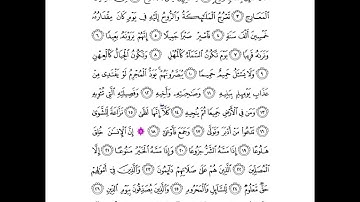 ٱلْمَعَارِجِ ٣ تَعْرُجُ ٱلْمَلَٰٓئِكَةُ وَٱلرُّوحُ إِلَيْهِ فِى يَوْمٍ كَانَ مِقْدَارُهُۥ
خَمْسِينَ أَلْفَ سَنَةٍ ٤ فَٱصْبِرْ صَبْرًا جَمِيلًا ٥ إِنَّهُمْ يَرَوْنَهُۥ بَعِيدًا ٦
وَنَرَىٰهُ قَرِيبًا ٧ يَوْمَ تَكُونُ ٱلسَّمَآءُ كَٱلْمُهْلِ ٨ وَتَكُونُ ٱلْجِبَالُ كَٱلْعِهْنِ
٩ وَلَا يَسْـَٔلُ حَمِيمٌ حَمِيمًا ١٠ يُبَصَّرُونَهُمْ يَوَدُّ ٱلْمُجْرِمُ لَوْ يَفْتَدِى مِنْ
عَذَابِ يَوْمِئِذٍۭ بِبَنِيهِ ١١ وَصَٰحِبَتِهِۦ وَأَخِيهِ ١٢ وَفَصِيلَتِهِ ٱلَّتِى تُـْٔوِيهِ
١٣ وَمَن فِى ٱلْأَرْضِ جَمِيعًا ثُمَّ يُنجِيهِ ١٤ كَلَّآ إِنَّهَا لَظَىٰ ١٥ نَزَّاعَةً لِّلشَّوَىٰ
١٦ تَدْعُوا۟ مَنْ أَدْبَرَ وَتَوَلَّىٰ ١٧ وَجَمَعَ فَأَوْعَىٰٓ ١٨ إِنَّ ٱلْإِنسَٰنَ خُلِقَ
هَلُوعًا ١٩ إِذَا مَسَّهُ ٱلشَّرُّ جَزُوعًا ٢٠ وَإِذَا مَسَّهُ ٱلْخَيْرُ مَنُوعًا ٢١ إِلَّا
ٱلْمُصَلِّينَ ٢٢ ٱلَّذِينَ هُمْ عَلَىٰ صَلَاتِهِمْ دَآئِمُونَ ٢٣ وَٱلَّذِينَ فِىٓ أَمْوَٰلِهِمْ
حَقٌّ مَّعْلُومٌ ٢٤ لِّلسَّآئِلِ وَٱلْمَحْرُومِ ٢٥ وَٱلَّذِينَ يُصَدِّقُونَ بِيَوْمِ ٱلدِّينِ ٢٦